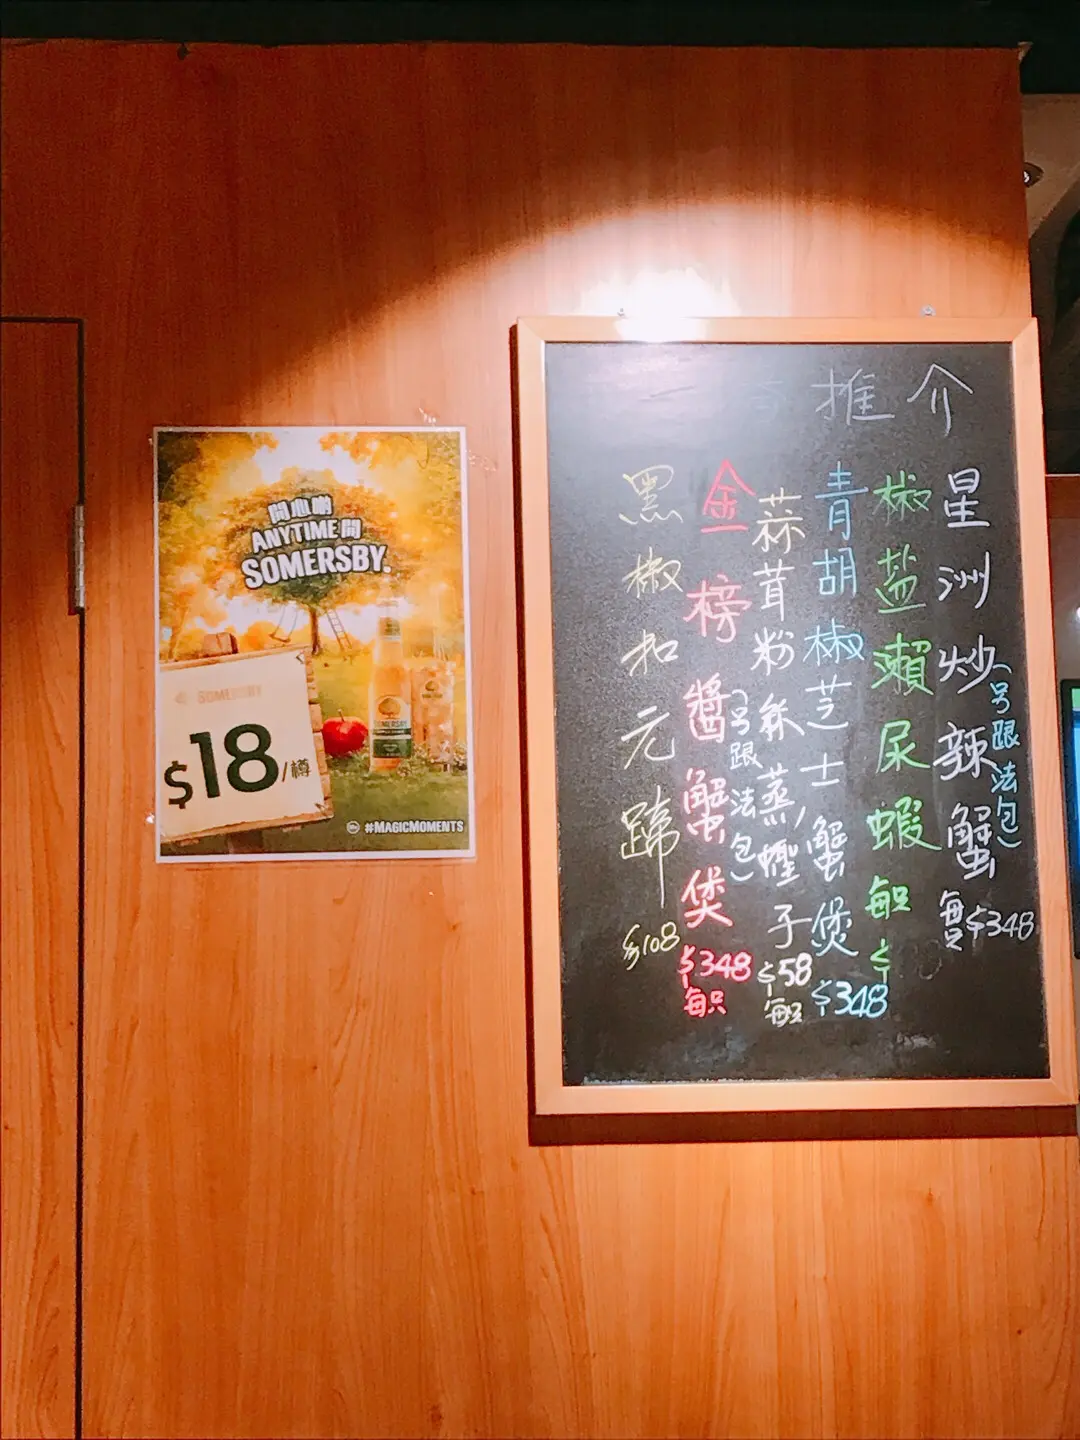 開心啲
ANYTIME 問
SOMERSBY.
SOMERSBY
$18/樽
#MAGICMOMENTS
推介
星洲炒辣蟹
(另跟法包)
每只$348
椒盐瀨尿蝦
每只
$
青胡椒芝士蟹煲
$348
蒜茸粉絲蒸蟶子
$58
每只
金榜醬蟹煲
(另跟法包)
$348
每只
黑椒扣元蹄
$108